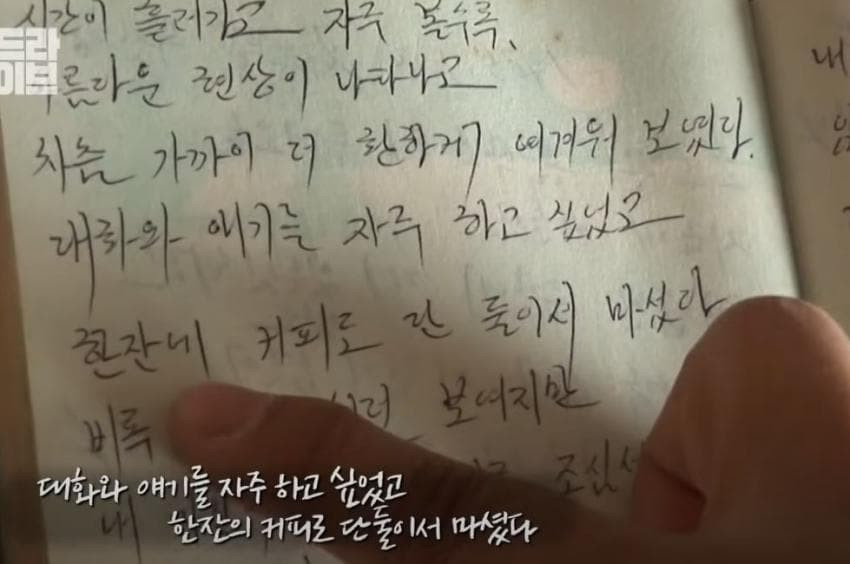 시간이 흘러가고 자주 볼수록,
드라
이브
아름다운 현상이 나타나고
차츰 가까이 더 환하게 여겨워 보였다.
대화와 얘기를 자주 하고 싶었고
한잔네 커피로 단 둘이서 마셨다
비록 보여지만
조심
내
대화와 얘기를 자주 하고 싶었고
한잔의 커피로 단둘이서 마셨다
내